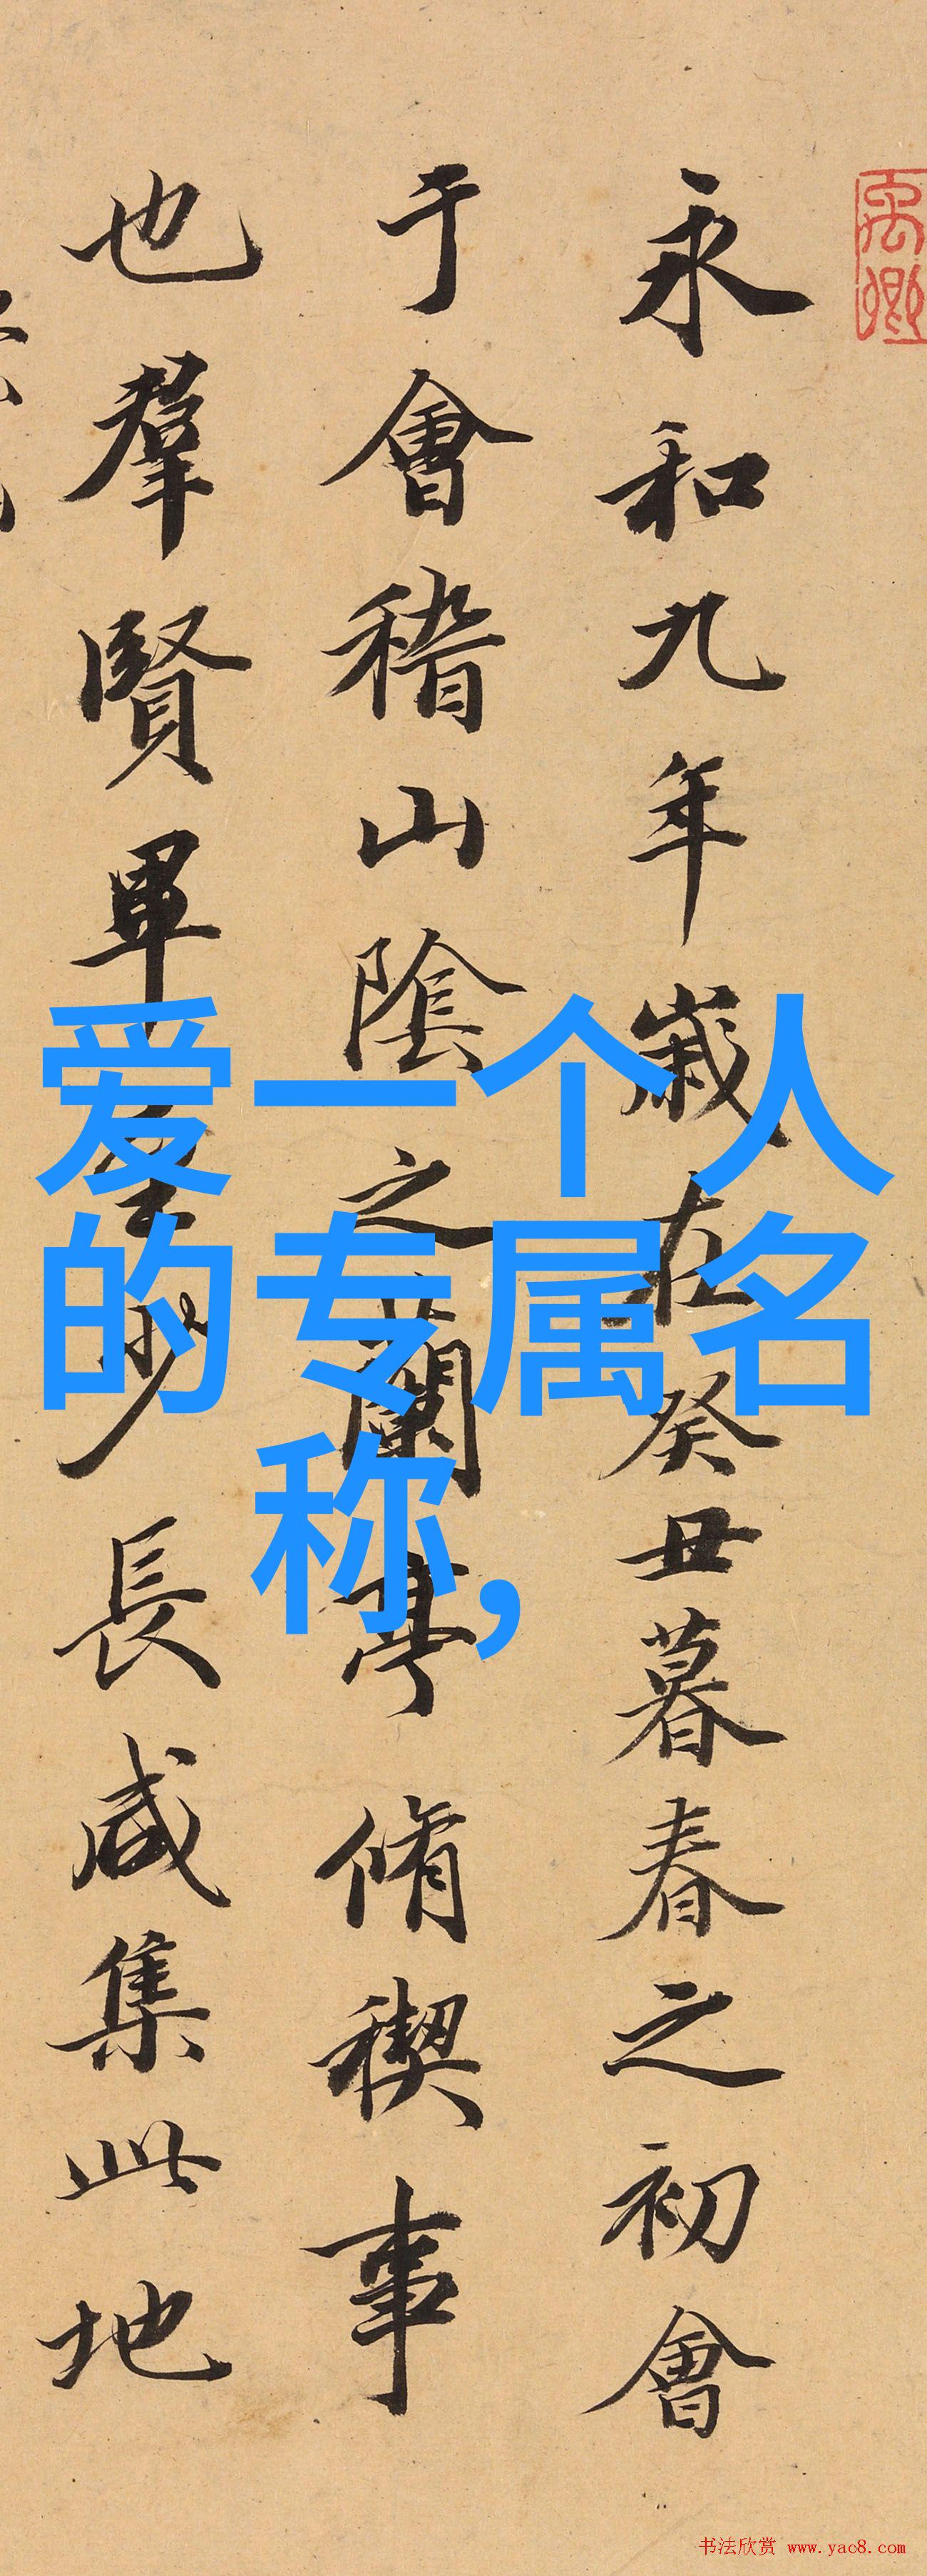 永和九年歲在癸丑暮春之初會
于會稽山陰之蘭亭脩稧事
也羣賢畢至少長咸集此地
爱一个人
的专属名
称，
书法欣赏 www.yac8.com